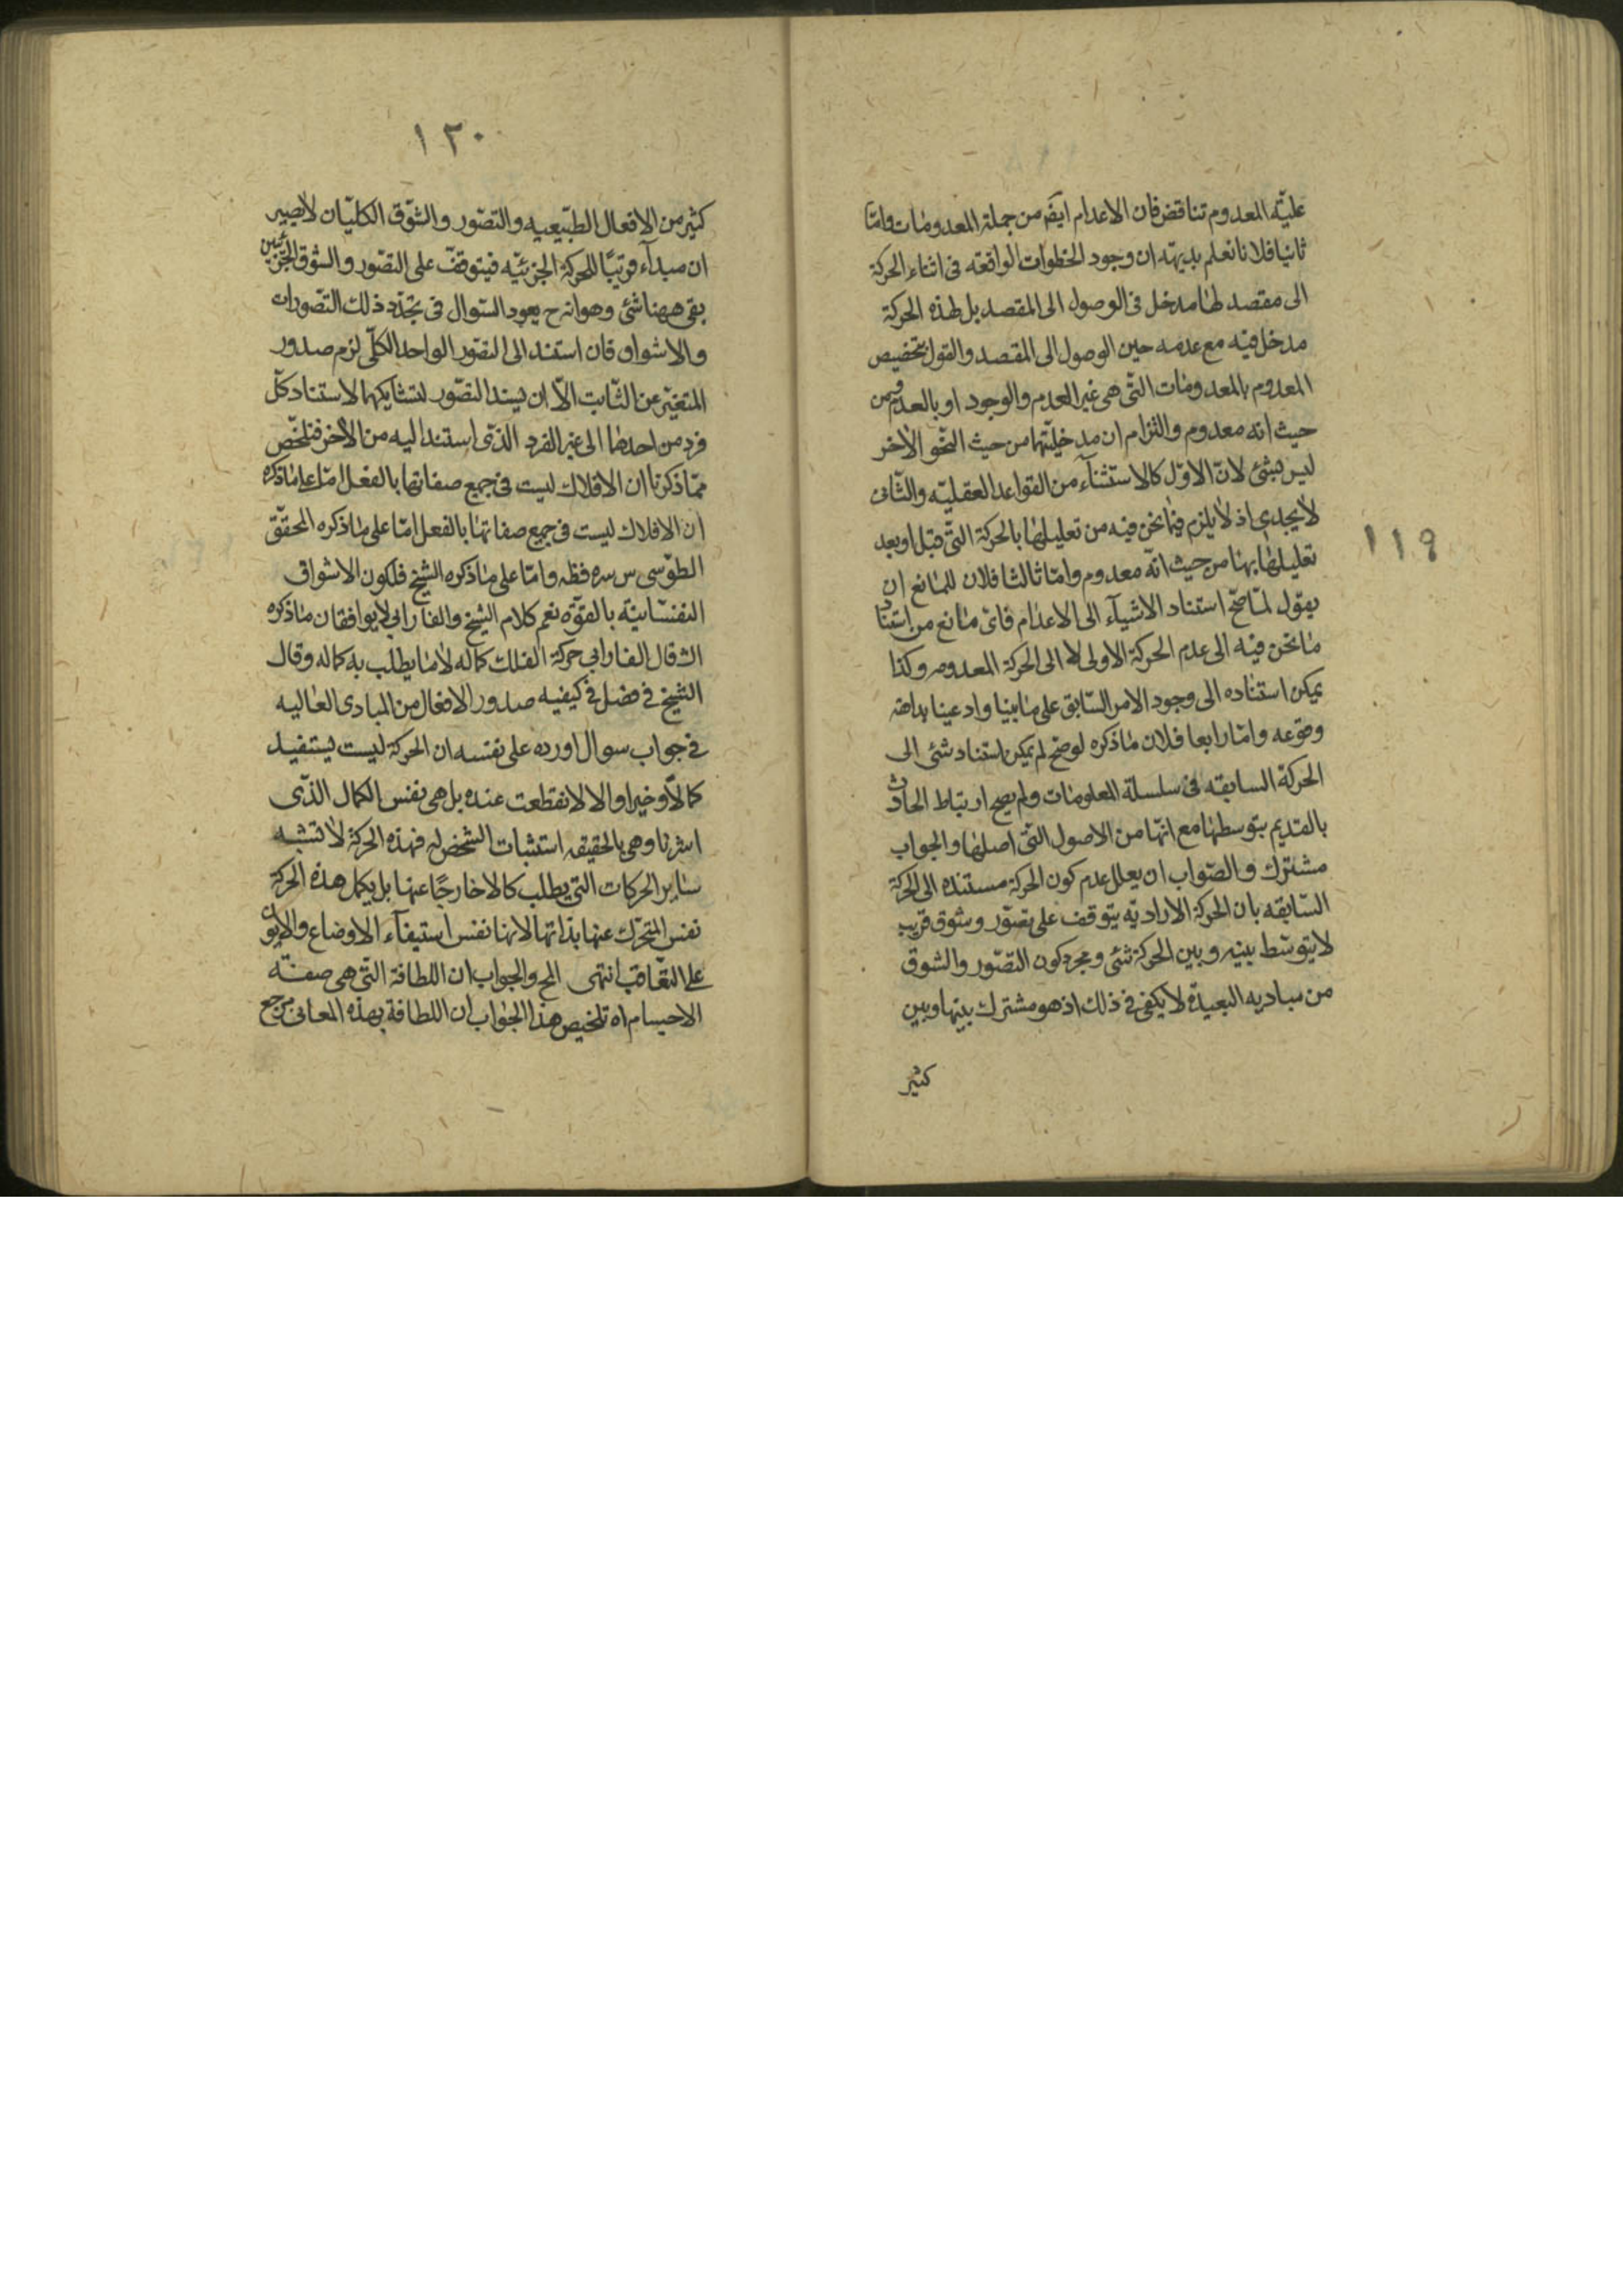 ١١٩
علیّه المعدوم تناقض فان الاعدام ایضر من جملة المعدومات وامّا
ثانیا فلانا نعلم بدیهة ان وجود الخطوات الواقعه فی اثناء الحرکة
الی مقصد لها مدخل فی الوصول الی المقصد بل لهذه الحرکة
مدخل فیه مع عدمه حین الوصول الی المقصد والقول بتخصیص
المعدوم بالمعدومات التّی هی غیر العدم والوجود او بالعدم من
حیث انه معدوم والتزام ان مدخلیّتها من حیث النّحو الآخر
لیس بشئ لانّ الاوّل کالاستثناء من القواعد العقلیّه والثّانی
لا یجدی اذ لا یلزم فیما نحن فیه من تعلیلها بالحرکة التّی قبل او بعد
تعلیلها بها من حیث انّه معدوم وامّا ثالثا فلان للمانع ان
یقول لمّا صحّ استناد الاشیآء الی الاعدام فای مانع من استناد
ما نحن فیه الی عدم الحرکة الاولی لا الی الحرکة المعدومه وکذا
یمکن استناده الی وجود الامر السّابق علی ما بینا وادعینا بداهة
وقوعه وامّا رابعا فلان ما ذکره لو صح لم یمکن استناد شئی الی
الحرکة السابقه فی سلسلة المعلومات ولم یصح ارتباط الحادث
بالقدیم بتوسطها مع انّها من الاصول التّی اصلها والجواب
مشترک والصّواب ان یعلل عدم کون الحرکة مستنده الی الحرکة
السّابقه بان الحرکة الارادیّه یتوقف علی تصوّر وشوق قریب
لا یتوسّط بینه وبین الحرکة شئی ومجرد کون التصّور والشوق
من مبادیه البعیدة لا یکفی فی ذلک اذ هو مشترک بینها وبین
کثیر
١٢٠
کثیر من الافعال الطبّیعیه والتصّور والشوّق الکلیّان لا یصیر
ان مبدآء قریبًا للحرکة الجزئیّه فیتوقف علی التصّور والشوّق الجزئیین
بقی ههنا شئ وهو انه ح یعود السّوال فی تجدّد ذلک التصّورات
والاشواق فان استند الی التصّور الواحد الکلّی لزم صدور
المتغیّر عن الثّابت الّا ان یسند التصّور لتشابکهما لاستناد کلّ
فرد من احدهما الی غیر الفرد الذّی استند الیه من الآخر فتلخّص
ممّا ذکرنا ان الافلاک لیست فی جمیع صفاتها بالفعل امّا علی ما ذکره
ان الافلاک لیست فی جمیع صفاتها بالفعل امّا علی ما ذکره المحقّق
الطوّسی س سره فظه وامّا علی ما ذکره الشیخ فلکون الاشواق
النفسّانیّه بالقوّه نعم کلام الشیخ والفارابی لا یوافقان ما ذکره
الش قال الفارابی حرکة الفلک کماله لا ما یطلب به کماله وقال
الشیخ فی فصل فی کیفیه صدور الافعال من المبادی العالیه
فی جواب سوال اورده علی نفسه ان الحرکة لیست یستفید
کمالاً وخیرا والا لانقطعت عنده بل هی نفس الکمال الذّی
اشرنا وهی بالحقیقه استثبات الشخص له فهذه الحرکة لا تشبه
سایر الحرکات التّی یطلب کمالا خارجًا عنها بل یکمل هذه الحرکة
نفس المتحرّک عنها بذاتها لانها نفس استیفآء الاوضاع والایون
علی التعّاقب انتهی المح والجواب ان اللطافة التّی هی صفته
الاجسام اه تلخیص هذا الجواب ان اللطافة بهذه المعانی مرجع